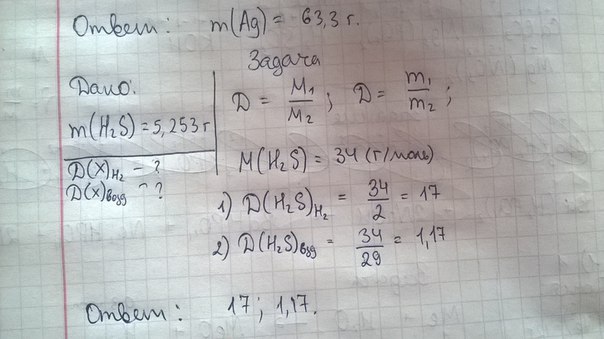 Ответ: m(Ag) = 63,3 г.
Задача
Дано:
m(H₂S) = 5,253 г
D(X)H₂ - ?
D(X)возд - ?
D = M₁/M₂; D = m₁/m₂;
M(H₂S) = 34 (г/моль)
1) D(H₂S)H₂ = 34/2 = 17
2) D(H₂S)возд = 34/29 = 1,17
Ответ: 17; 1,17.